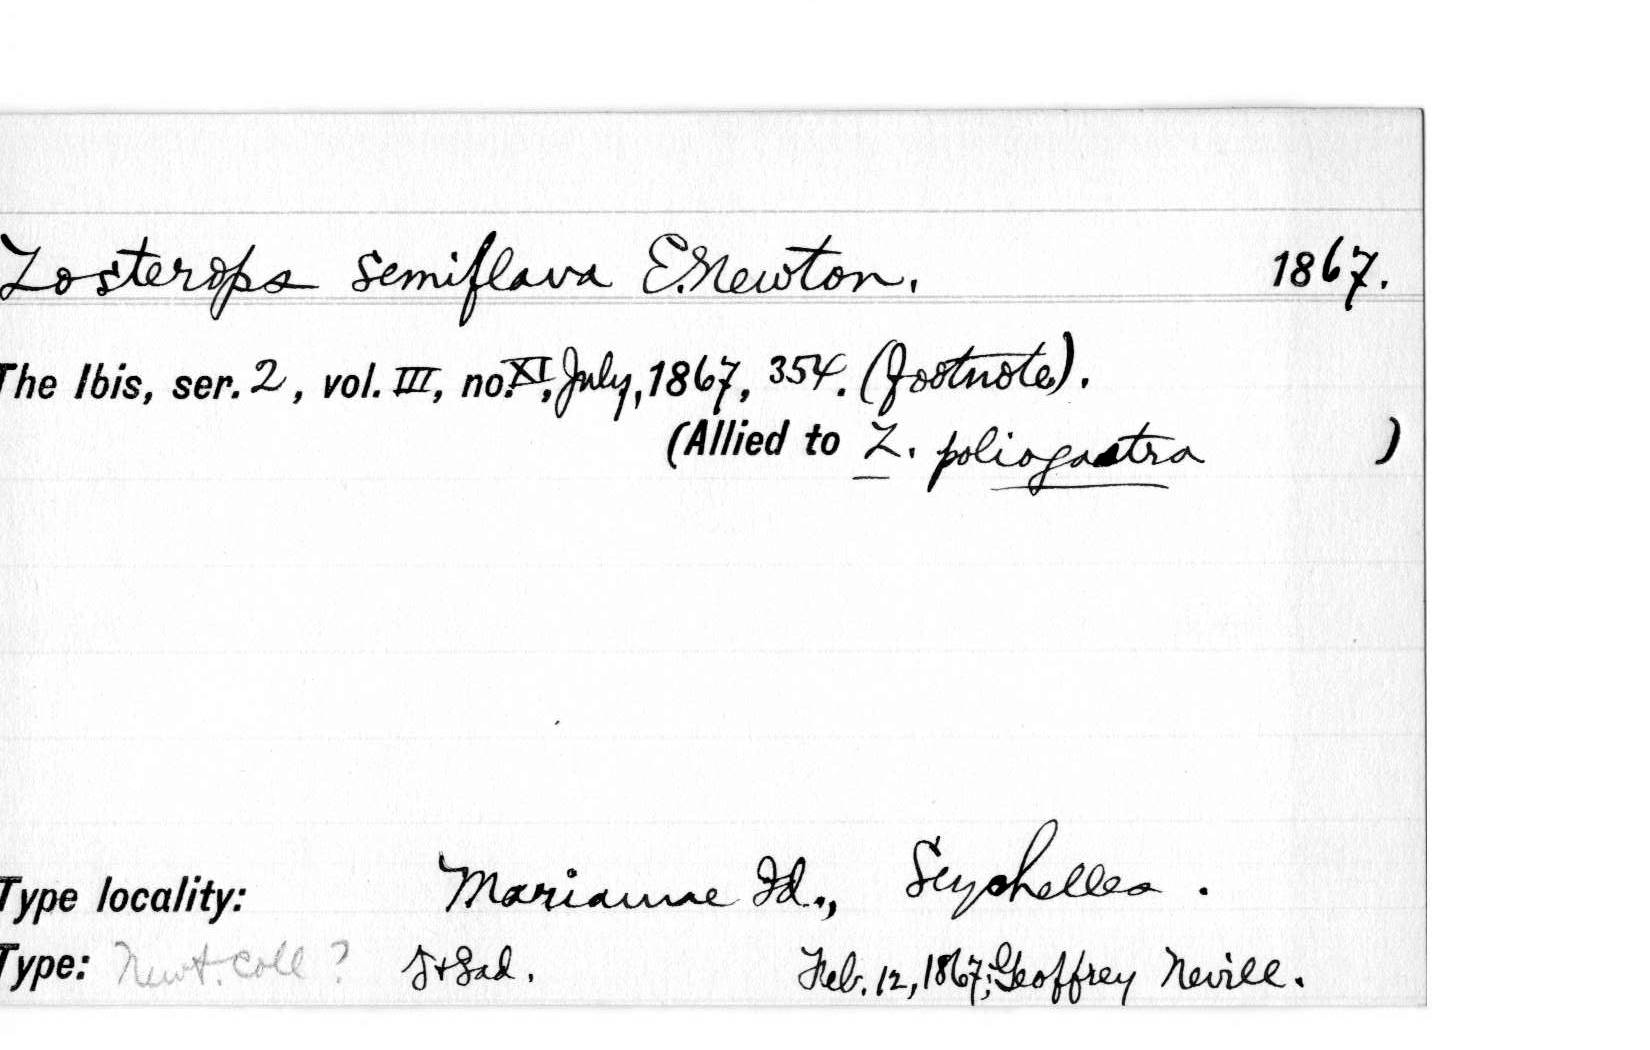 Zosterops semiflava E. Newton. 1867.
The Ibis, ser. 2, vol. III, no. XI, July, 1867, 354. (footnote).
(Allied to Z. poliogastra )
Type locality: Marianne Id., Seychelles.
Type: Newt. Coll? Feb. 12, 1867; Geoffrey Nevill.